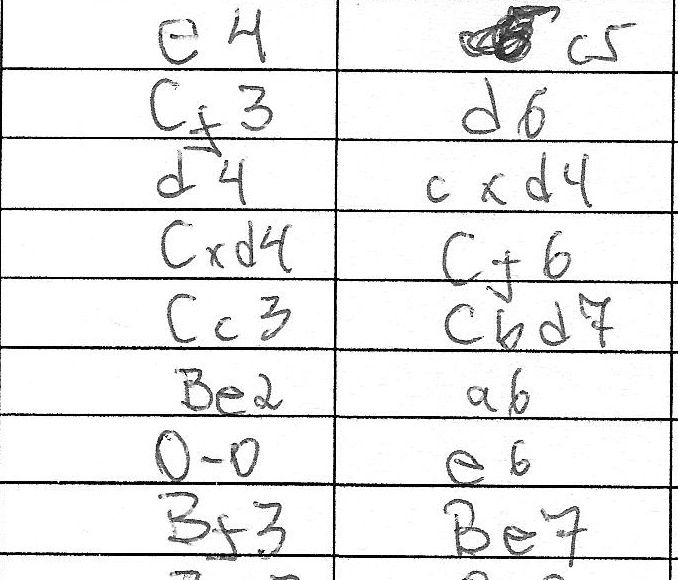 e4 c5
Cf3 d6
d4 cxd4
Cxd4 Cf6
Cc3 Cbd7
Be2 a6
0-0 e6
Bf3 Be7